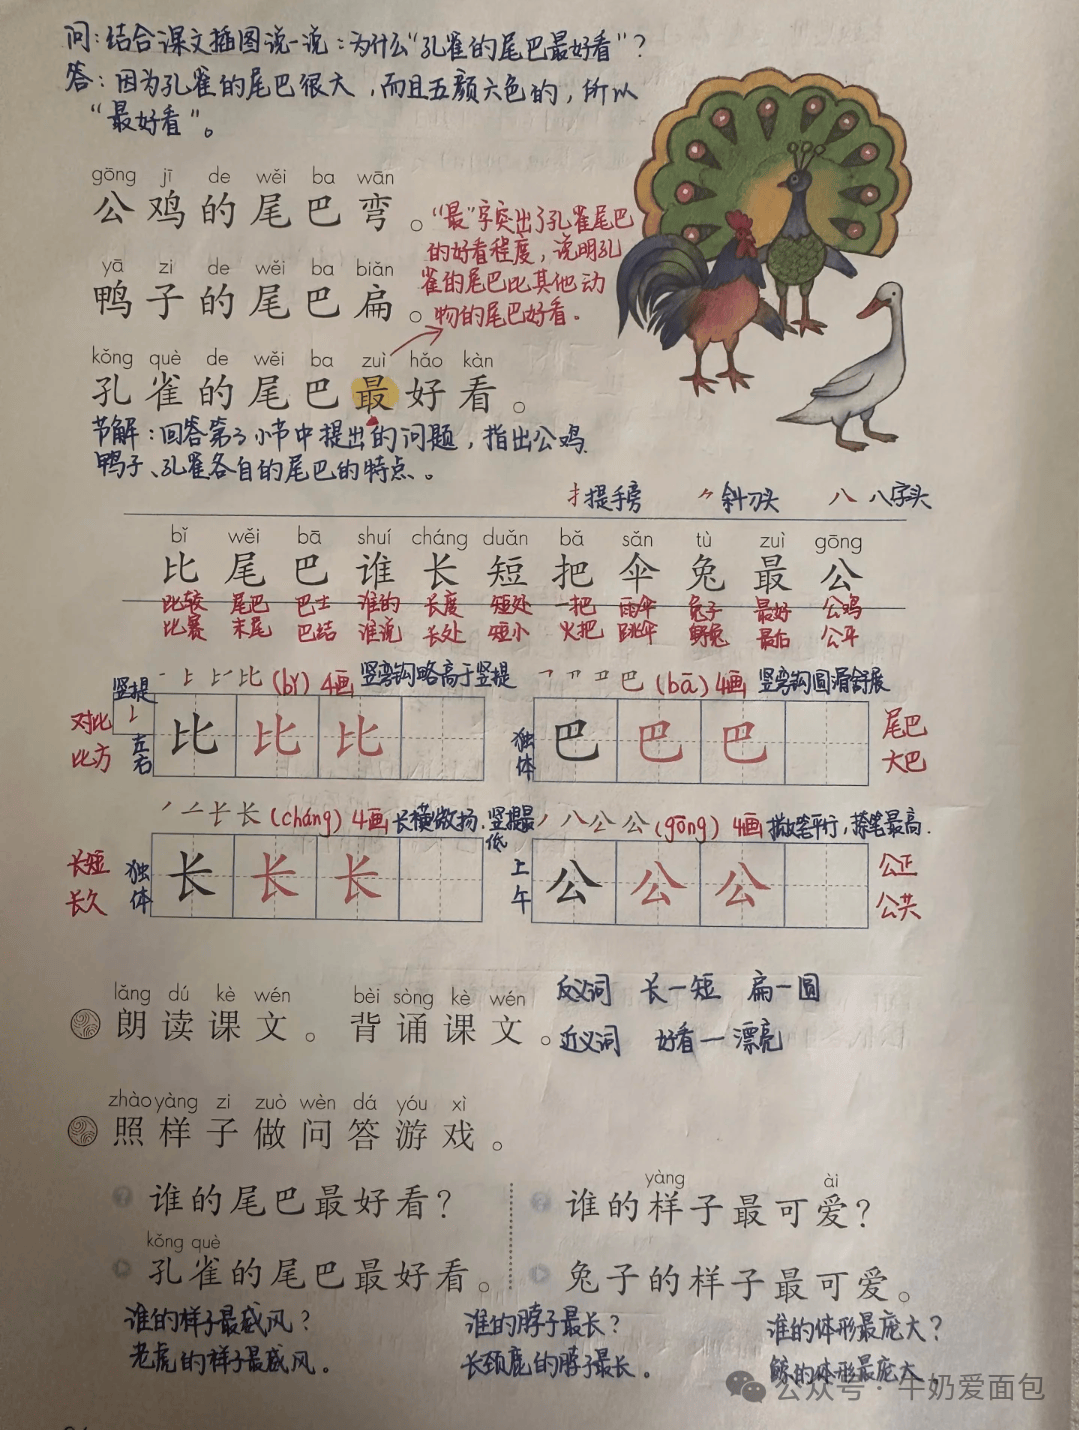 问：结合课文插图说一说：为什么“孔雀的尾巴最好看”？
答：因为孔雀的尾巴很大，而且五颜六色的，所以
“最好看”。
gōng jī de wěi ba wān
公鸡的尾巴弯。
“最”字突出了孔雀尾巴
的好看程度，说明孔
雀的尾巴比其他动
物的尾巴好看。
yā zi de wěi ba biǎn
鸭子的尾巴扁。
kǒng què de wěi ba zuì hǎo kàn
孔雀的尾巴最好看。
节解：回答第3小节中提出的问题，指出公鸡、
鸭子、孔雀各自的尾巴的特点。
扌提手旁 ⺈斜刀头 八 八字头
bǐ wěi bā shuí cháng duǎn bǎ sǎn tù zuì gōng
比 尾 巴 谁 长 短 把 伞 兔 最 公
比较 尾巴 巴士 谁的 长度 短处 一把 雨伞 兔子 最好 公鸡
比赛 末尾 巴结 谁说 长处 短小 火把 跳伞 野兔 最后 公平
比(bǐ) 4画 竖弯钩略高于竖提
竖提
对比
比方
左右
比 比 比
巴(bā) 4画 竖弯钩圆滑舒展
独体
巴 巴 巴
尾巴
大巴
长(cháng) 4画 长横微扬，竖提最低
长短
长久
独体
长 长 长
公(gōng) 4画 撇笔平行，捺笔最高.
上午
公 公 公
公正
公共
lǎng dú kè wén bèi sòng kè wén
朗读课文。背诵课文。
反义词 长—短 扁—圆
近义词 好看—漂亮
zhào yàng zi zuò wèn dá yóu xì
照样子做问答游戏。
谁的尾巴最好看？
kǒng què
孔雀的尾巴最好看。
yàng ài
谁的样子最可爱？
兔子的样子最可爱。
谁的样子最威风？
老虎的样子最威风。
谁的脖子最长？
长颈鹿的脖子最长。
谁的体形最庞大？
鲸的体形最庞大。
公众号·牛奶爱面包